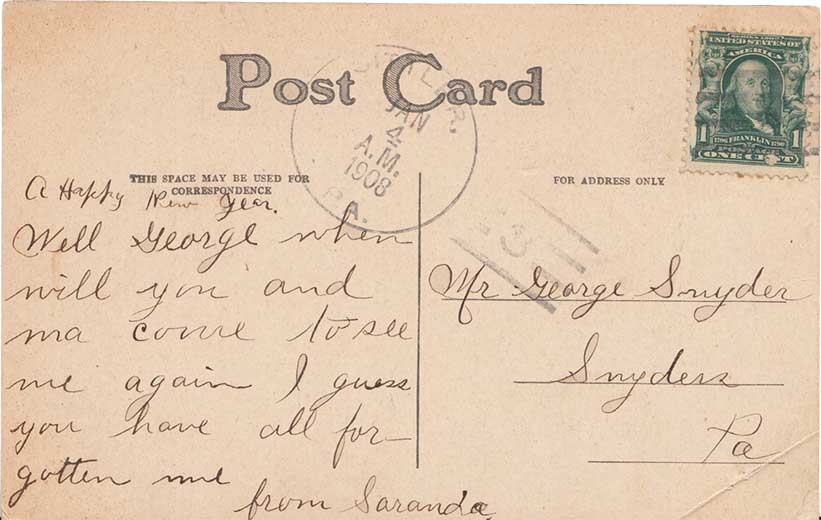 Post Card
JAN
4
A.M.
1908
PA.
SERIES 1902
UNITED STATES OF
AMERICA
1 1706 FRANKLIN 1790 1
POSTAGE
ONE CENT
THIS SPACE MAY BE USED FOR
CORRESPONDENCE
FOR ADDRESS ONLY
3
A Happy New Year.
Well George when
will you and
ma come to see
me again I guess
you have all for-
gotten me
from Saranda
Mr George Snyder
Snyders
Pa